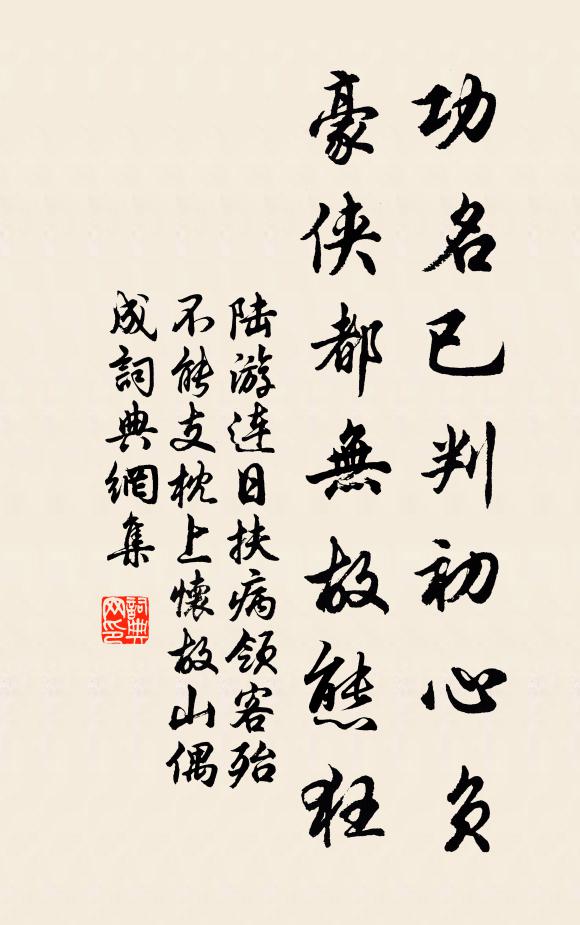 功名已判初心负
豪侠都無故態狂
陆游連日扶病领客殆
不能支枕上懷故山偶
成詞典網集
詞典网印